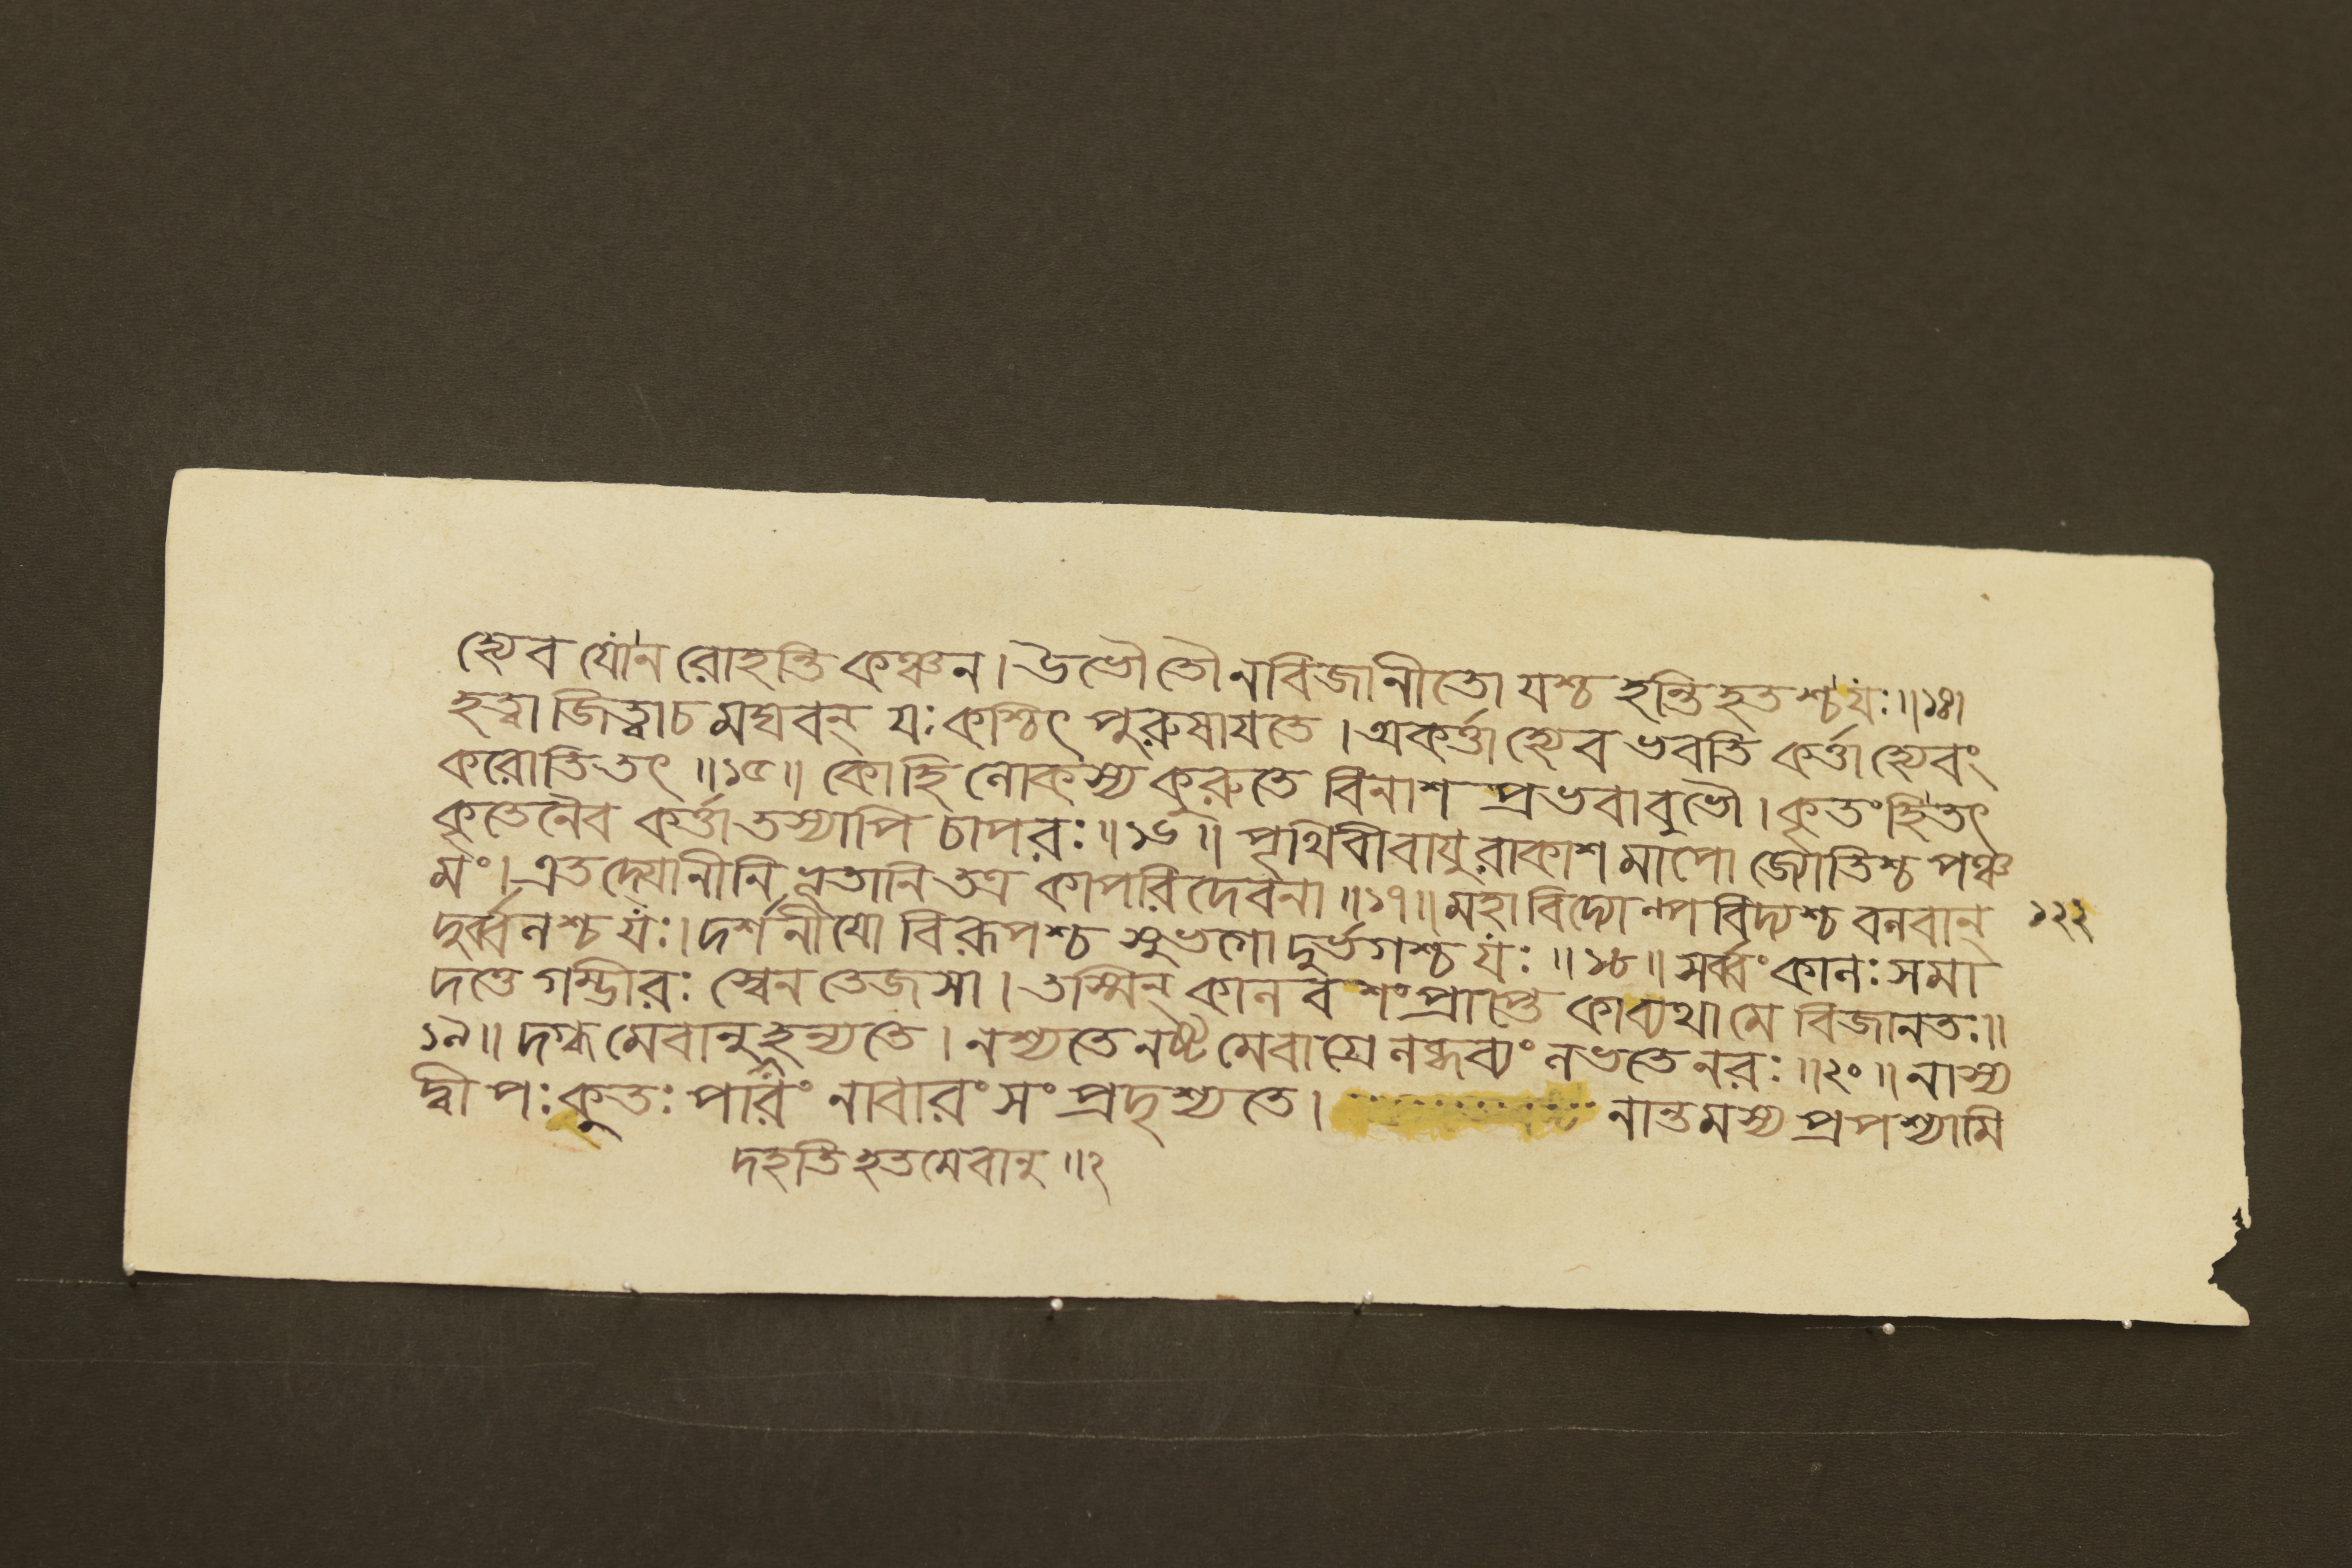 হ্যেব যোনরোহন্তি কঞ্চন।উভৌতৌনবিজানীতো যশ্চ হন্তিহতশ্চযঃ॥১৪।
হত্বা জিত্বাচ মঘবন্ যঃকশ্চিৎ পুরুষাযতে।অকর্ত্তাহ্যেব ভবতি কর্ত্তাহ্যেবং
করোতিতৎ॥১৫॥ কোহি লোকস্য কুরুতে বিনাশ প্রভবাবুভৌ।কৃতংহিতৎ
কৃতেনৈব কর্ত্তাতস্যাপি চাপরঃ॥১৬॥ পৃথিবীবাযুরাকাশ মাপো জ্যোতিশ্চ পঞ্চ
মং।এতদ্যোনীনি ভূতানি তত্র কাপরিদেবনা॥১৭॥মহাবিদ্যোল্পবিদ্যশ্চ বলবান্
১২২
দুর্ব্বলশ্চ যঃ।দর্শনীযো বিরূপশ্চ সুভগো দুর্ভগশ্চযঃ॥১৮॥সর্ব্বংকালঃসমা
দত্তে গম্ভীরঃ স্বেন তেজসা।তস্মিন্ কালবশংপ্রাপ্তে কাব্যথামে বিজানতঃ॥
১৯॥দগ্ধমেবানুহন্যতে।নশ্যতে নষ্টমেবাগ্রে লব্ধব্যং লভতে নরঃ॥২০॥নাস্য
দ্বীপঃকুতঃপারং নাবারংসংপ্রদৃশ্যতে। নান্তমস্য প্রপশ্যামি
দহতিহতমেবানু॥২